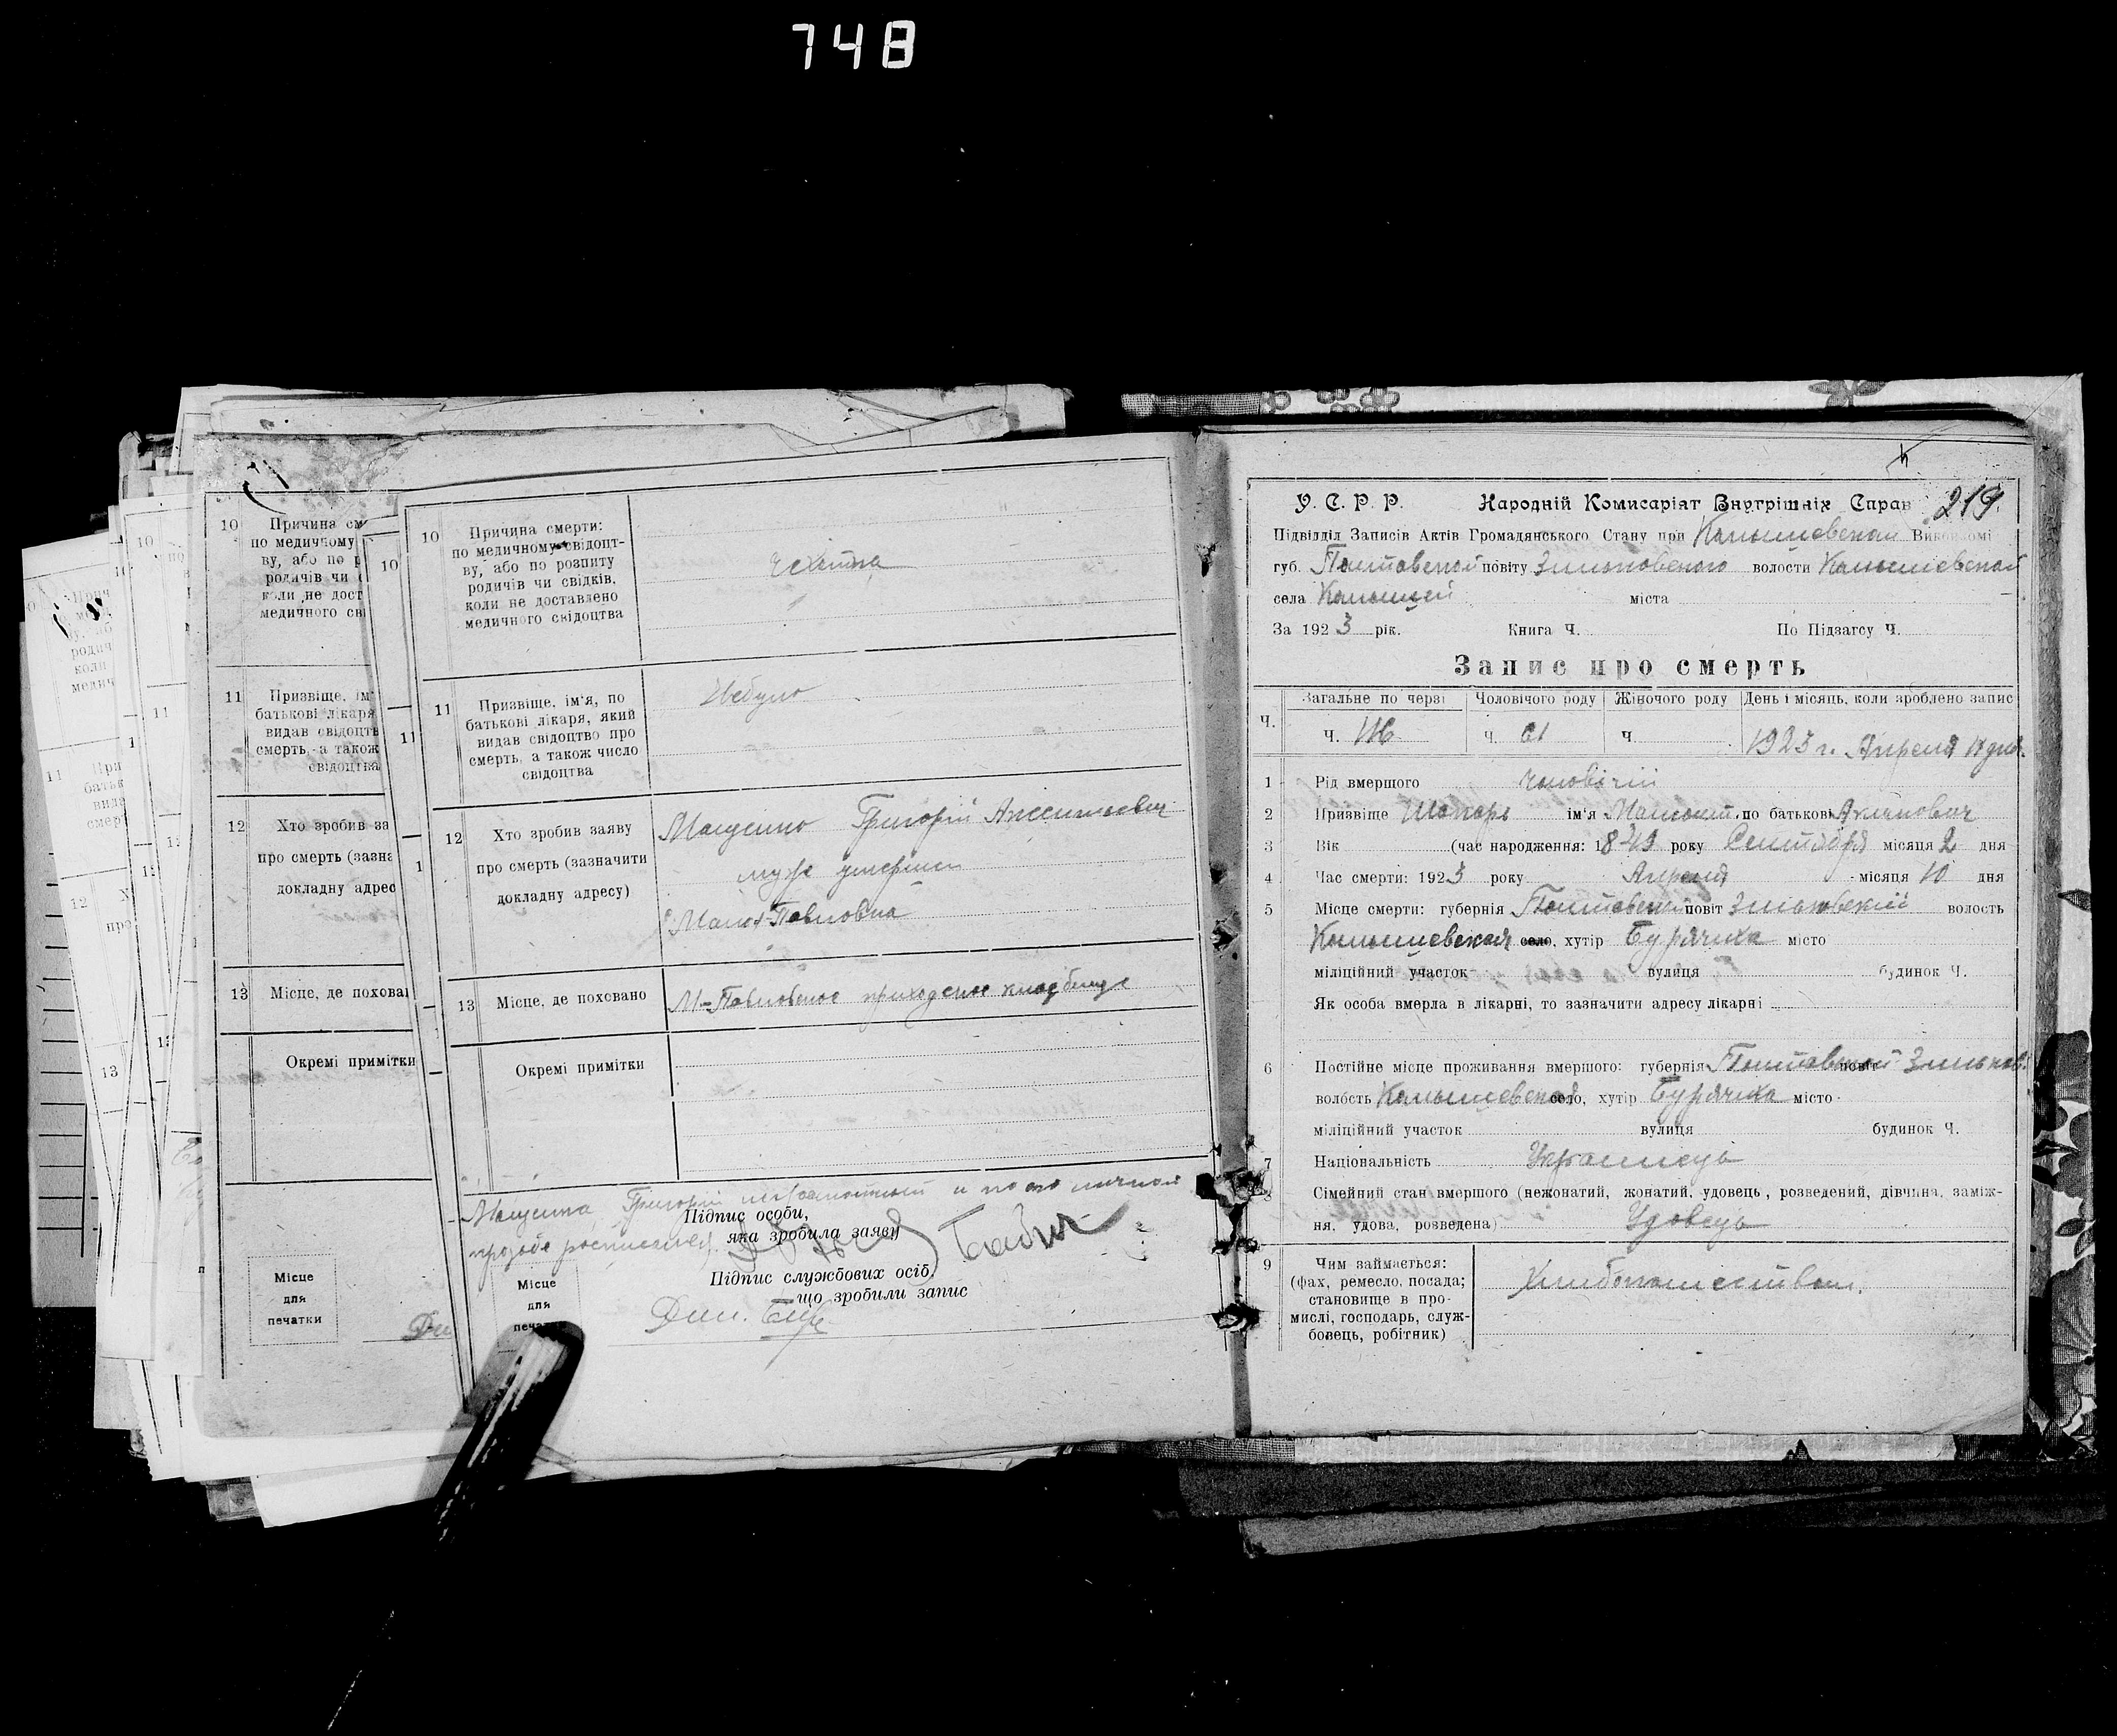 748
10
Причина см
по медичному
ву, або по р
родичів чи с
коли не дост
медичного сві
11
Призвіще, ім
батькові лікаря
видав свідоцтв
смерть, а також
свідоцтва
12
Хто зробив за
про смерть (зазна
докладну адрес
13
Місце, де похова
Окремі примітки
Місце
для
печатки
10
Причина смерти:
по медичному свідоцт-
ву, або по розпиту
родичів чи свідків,
коли не доставлено
медичного свідоцтва
Чехотка
11
Призвіще, ім'я, по
батькові лікаря, який
видав свідоцтво про
смерть, а також число
свідоцтва
Небуло
12
Хто зробив заяву
про смерть (зазначити
докладну адресу)
Григорій
муж умершей
Павловка
13
Місце, де поховано
М-Павловское приходское кладбище
Окремі примітки
Григорій неграмотный и по его личной
Підпис особи,
просьбе росписался
яка зробила заяву
Бабич
Місце
для
Підпис службових осіб,
що зробили запис
У. С. Р. Р. Народній Комисаріят Внутрішніх Справ 219
Підвідділ Записів Актів Громадянського Стану при Камышевской Виконкомі
губ. Полтавской повіту Зиньковского волости Камышевской
села Камышей міста
За 1923 рік. Книга Ч. По Підзагсу Ч.
Запис про смерть
Ч.
Загальне по черзі
Чоловічого роду
Жіночого роду
День і місяць, коли зроблено запис
ч. 116
ч. 61
ч.
1923 г. Апреля 18 дня
1 Рід вмершого чоловічий
2 Призвіще Шапарь ім'я по батькові Акимович
3 Вік (час народження: 1843 року Сентября місяця 2 дня
4 Час смерти: 1923 року Апреля місяця 10 дня
5 Місце смерти: губернія Полтавской повіт Зиньковский волость
Камышевская село, хутір Бурячиха місто
міліційний участок вулиця будинок Ч.
Як особа вмерла в лікарні, то зазначити адресу лікарні
6 Постійне місце проживання вмершого: губернія Полтавской повіт Зиньков.
волость Камышевской село, хутір Бурячиха місто
міліційний участок вулиця будинок Ч.
7 Національність Украинець
8 Сімейний стан вмершого (нежонатий, жонатий, удовець, розведений, дівчина, заміж-
ня, удова, розведена) Удовець
9
Чим займається:
(фах, ремесло, посада;
становище в про-
мислі, господарь, служ-
бовець, робітник)
Хлибопашеством.